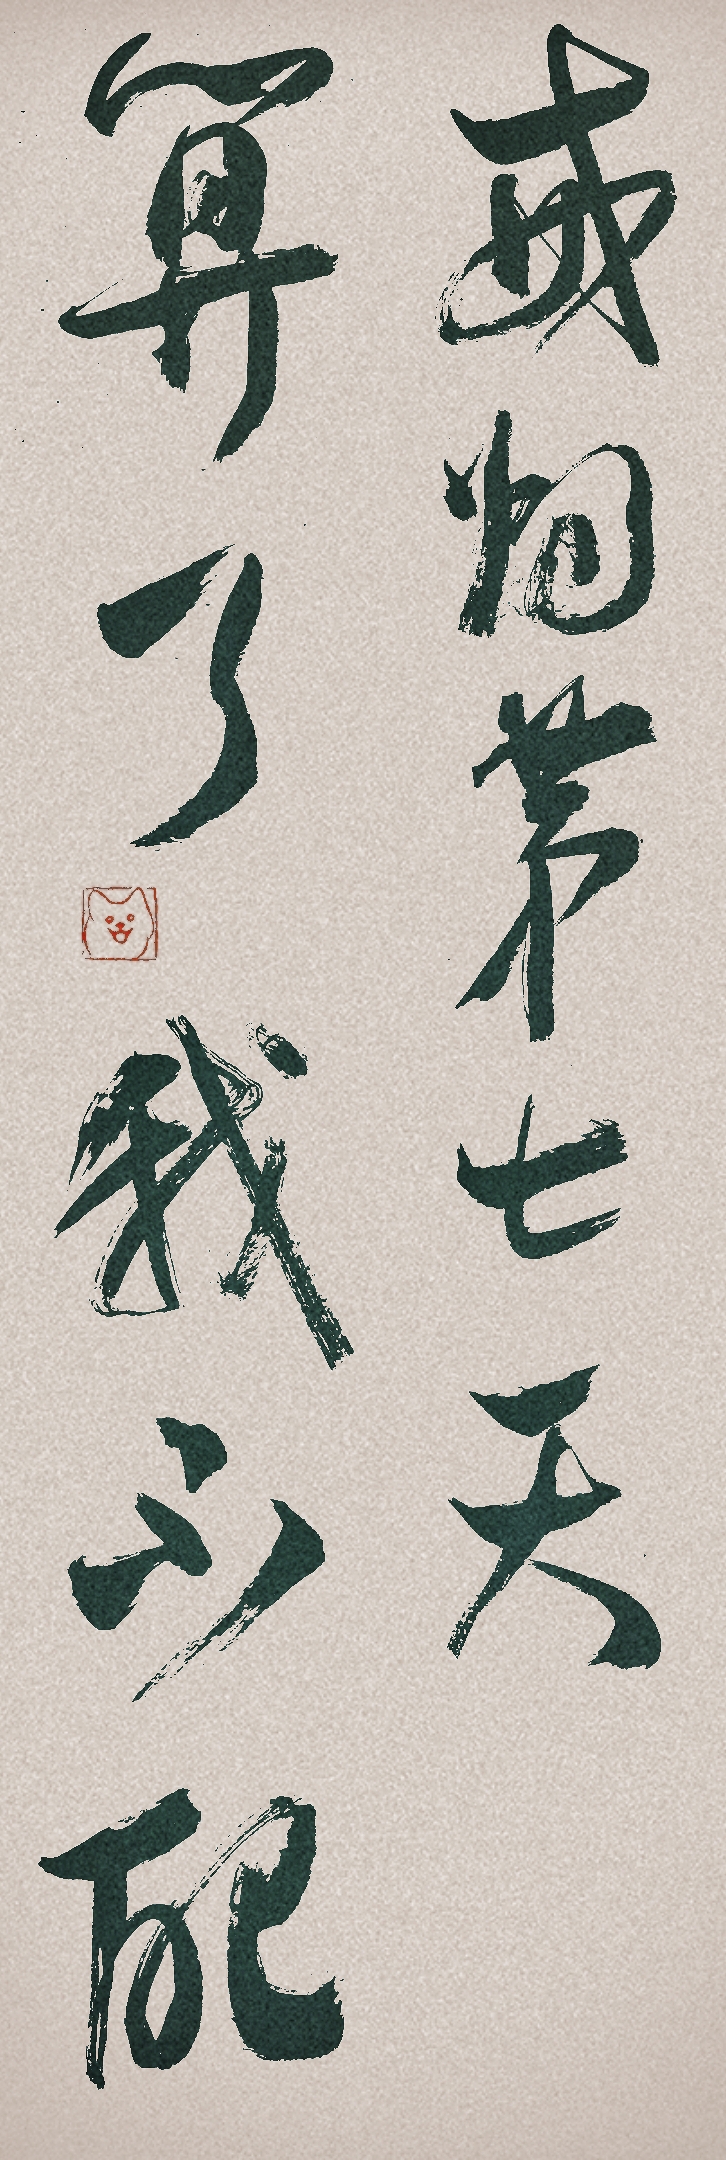 戒烟第七天
算了我不配